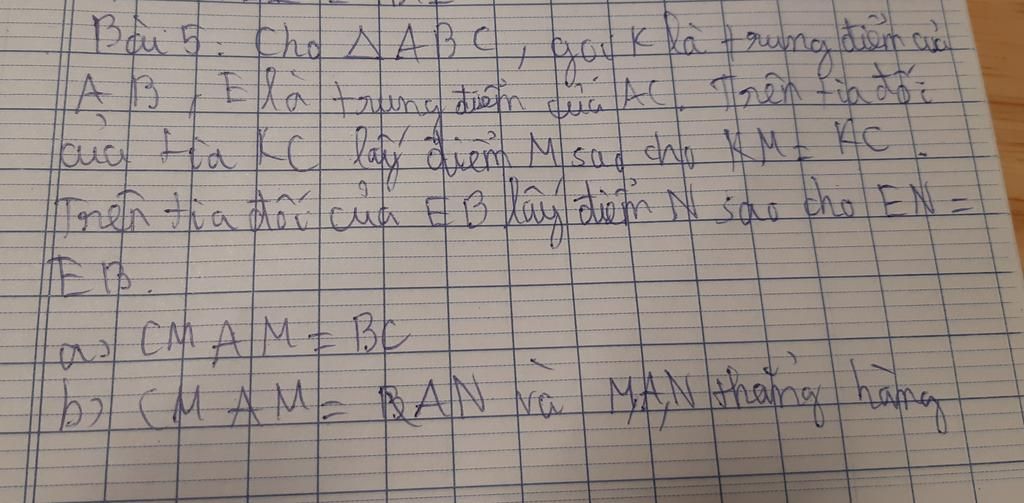 Bài 5: Cho △ABC, gọi K là trung điểm của
AB, E là trung điểm của AC. Trên tia đối
của tia KC lấy điểm M sao cho KM = KC.
Trên tia đối của EB lấy điểm N sao cho EN =
EB.
a) CM AM = BC
b) CM AM = AN và M,A,N thẳng hàng